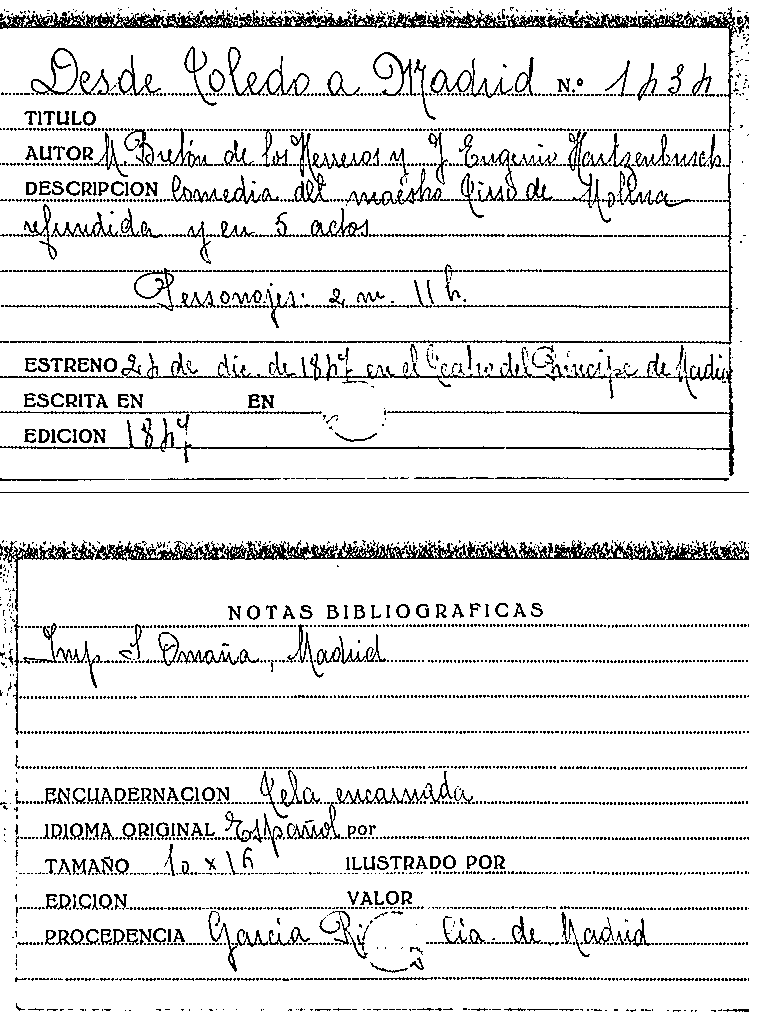 Desde Toledo a Madrid N.º 1434
TITULO
AUTOR M. Bretón de los Herreros y J. Eugenio Hartzenbusch
DESCRIPCION Comedia del maestro Tirso de Molina
refundida y en 5 actos
Personajes: 2 m. 11 h.
ESTRENO 24 de dic. de 1847 en el Teatro del Príncipe de Madrid
ESCRITA EN EN
EDICION 1847
NOTAS BIBLIOGRAFICAS
Imp S Omaña, Madrid
ENCUADERNACION Tela encarnada
IDIOMA ORIGINAL Español por
TAMAÑO 10 x 16 ILUSTRADO POR
EDICION VALOR
PROCEDENCIA Garcia Cia. de Madrid